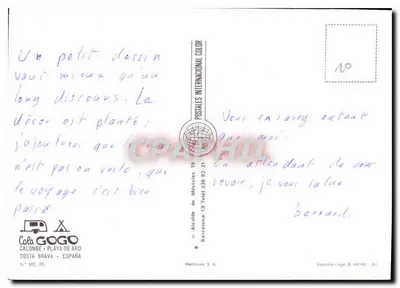 Un petit dessin
vaut mieux qu'un
long discours. Le
décor est planté;
j'ajouterai que
n'est pas en reste, que
le voyage s'est bien
passé
Cala GOGO
CALONGE - PLAYA DE ARO
COSTA BRAVA - ESPAÑA
POSTALES INTERNACIONAL COLOR
Alcalde de Móstoles, 18
Barcelona-13 Telef. 236-92 31
Vous en savez autant
que moi.
En attendant de vous
revoir, je vous salue
Bernard